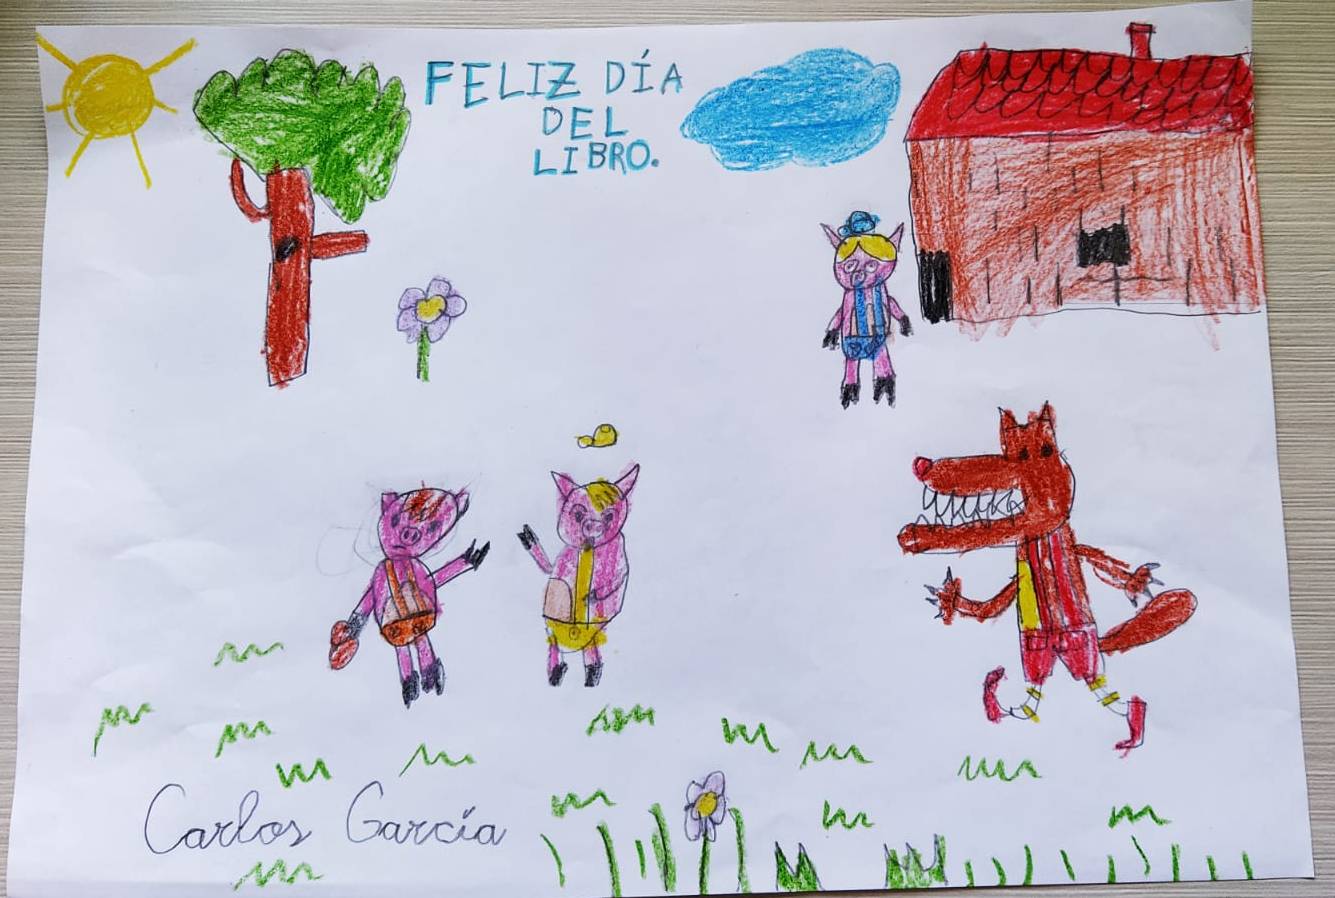 FELIZ DÍA
DEL
LIBRO.
Carlos García